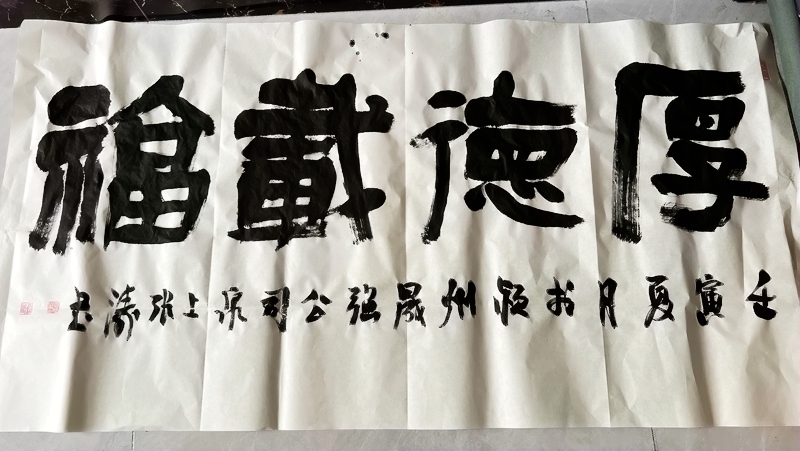 厚德載福
壬寅夏月於颍州晟强公司泉上张涛书